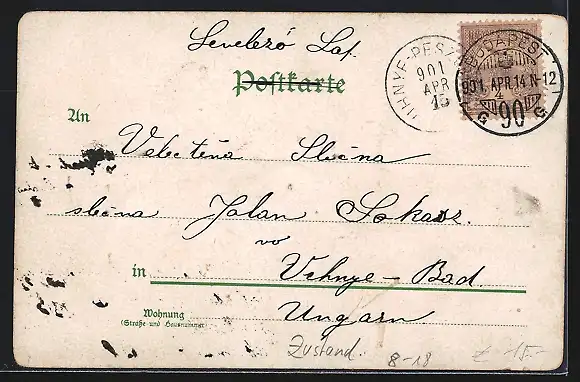 Levelező Lap.
Postkarte
VIHNYE-PESZ
901
APR
15
BUDAPEST
901. APR. 14 N-12
90
G G
An
Velectena Slečna
slečna Jolan Sokasz.
vo
in Vehnye-Bad.
Wohnung
(Straße und Hausnummer)
Ungarn
Zustand.
8-18